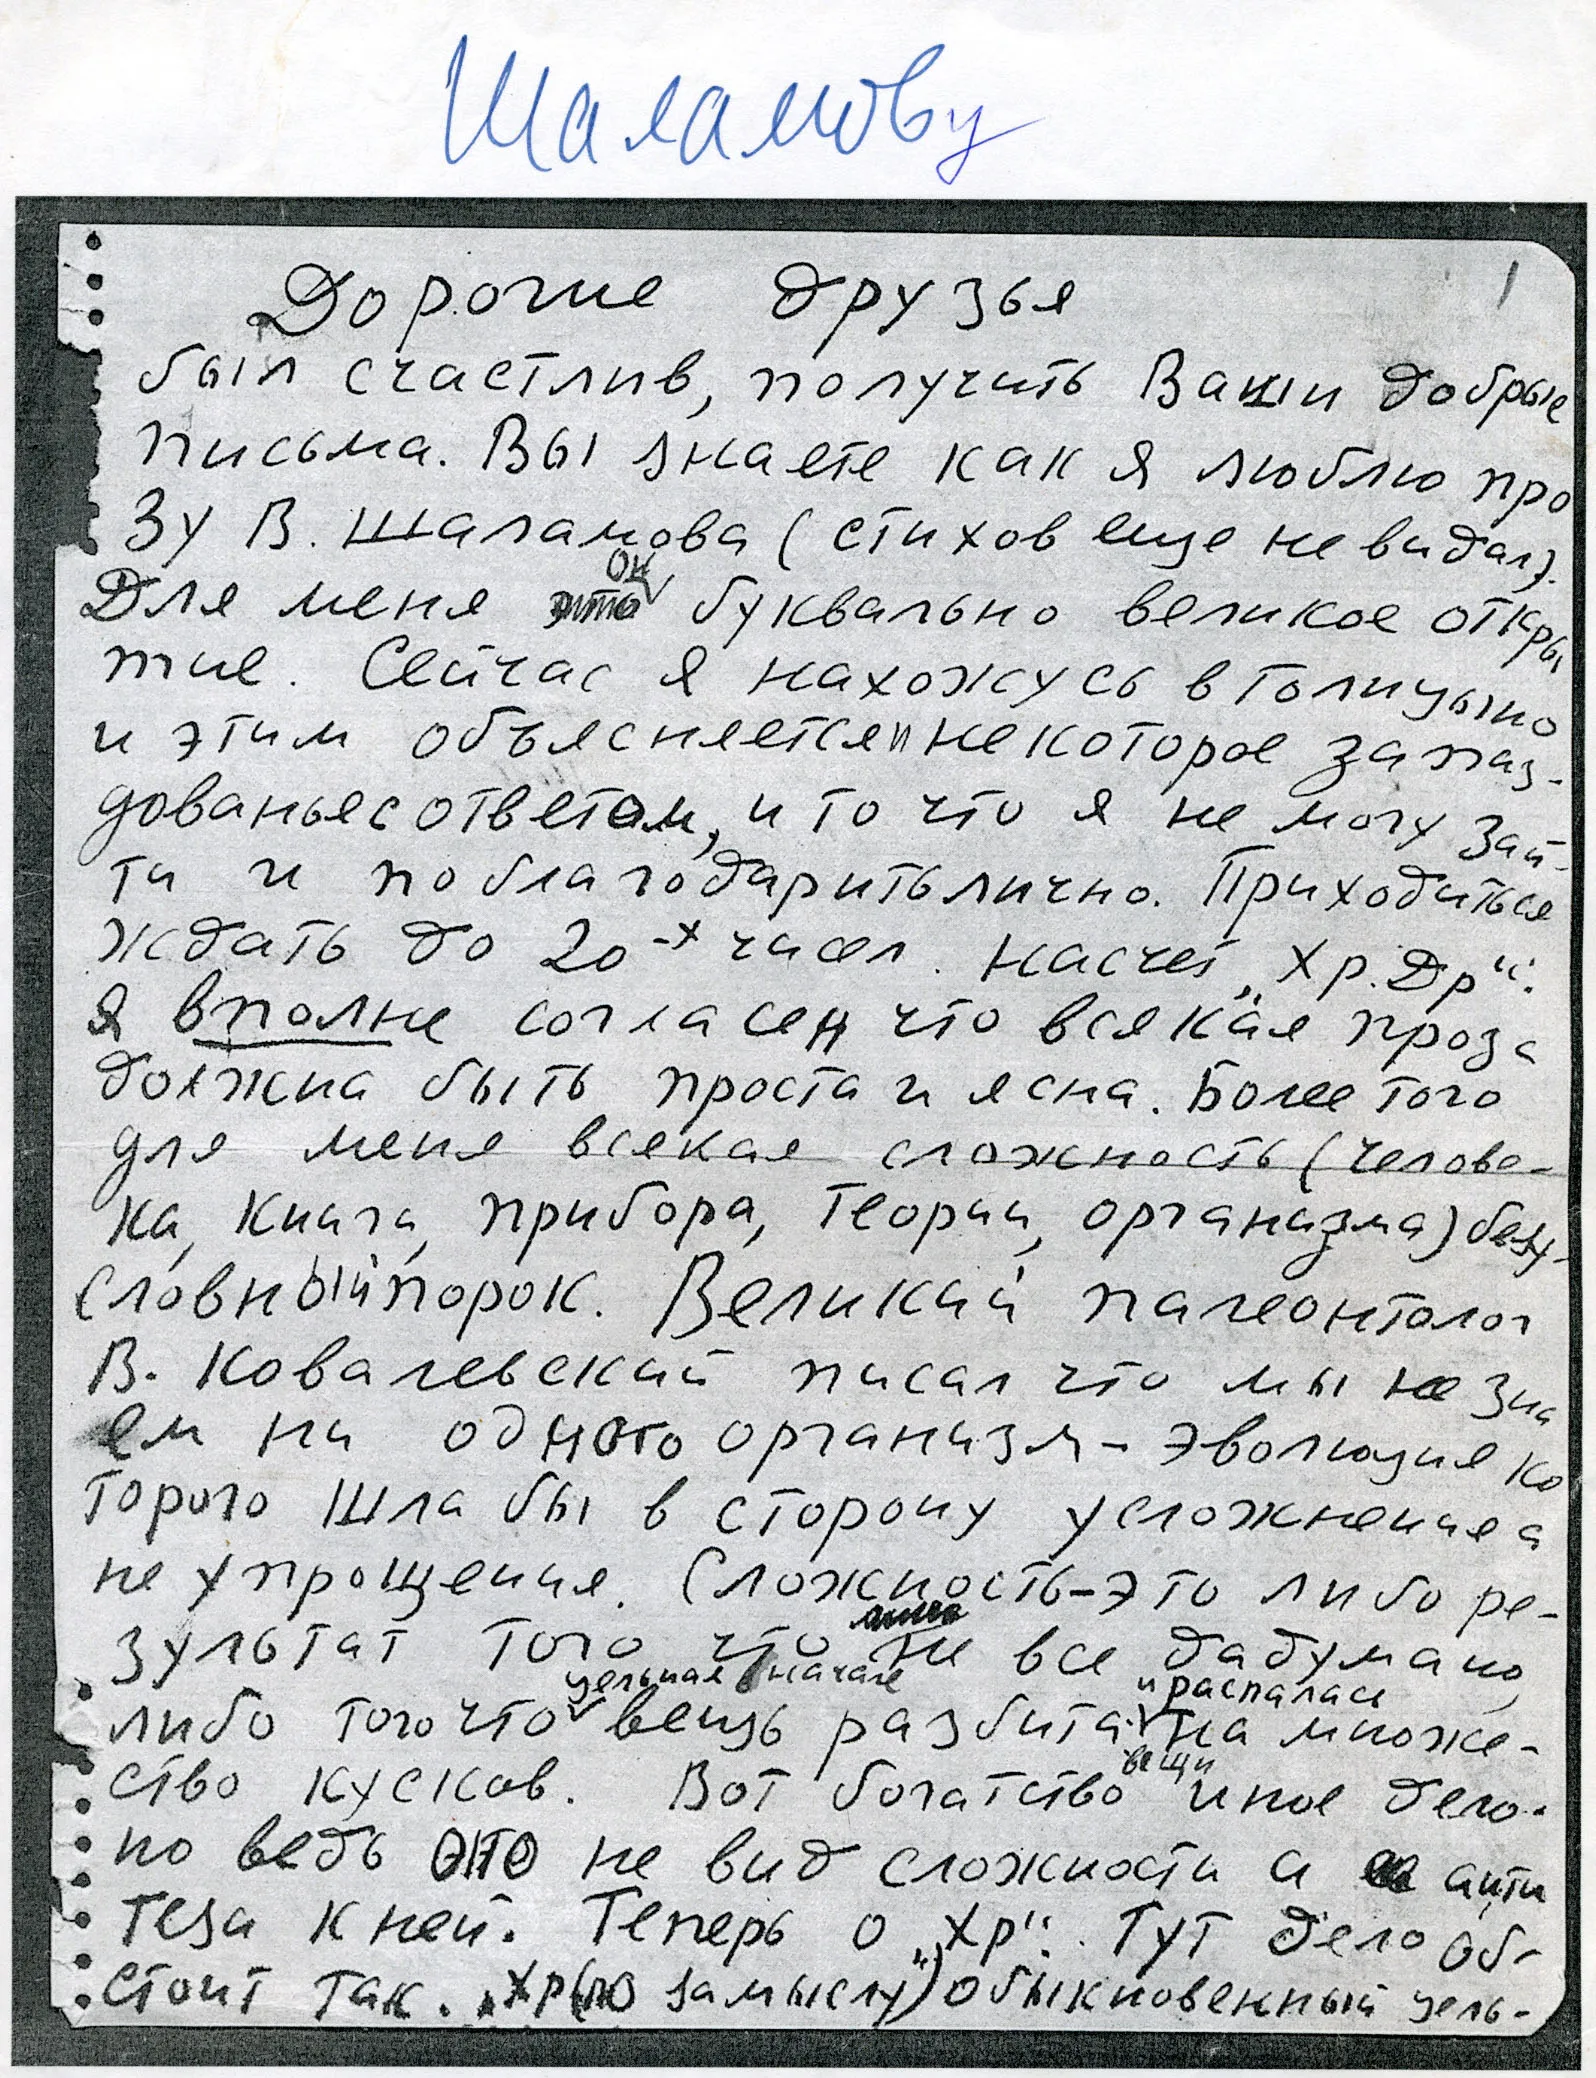 Шаламову
1
Дорогие друзья
был счастлив, получить Ваши добрые
письма. Вы знаете как я люблю про
зу В. Шаламова (стихов еще не видал).
Для меня он буквально великое откры
тие. Сейчас я нахожусь в Голицыно
и этим объясняется и некоторое запаз-
дованье с ответом, и то что я не могу зай-
ти и поблагодарить лично. Приходиться
ждать до 20-х чисел. Насчет „Хр. Др“.
Я вполне согласен что всякая проза
должна быть проста и ясна. Более того
для меня всякая сложность (челове-
ка, книги, прибора, теории, организма) безу-
словный порок. Великий палеонтолог
В. Ковалевский писал что мы не зна
ем ни одного организм – эволюция ко
торого шла бы в сторону усложнения а
не упрощения. Сложность – это либо ре-
зультат того что не все дадумано,
либо того что цельная вначале вещь разбита и распалась на множе-
ство кусков. Вот богатство вещи иное дело.
но ведь это не вид сложности а анти
теза к ней. Теперь о „Хр“. Тут дело об-
стоит так. „Хр (по замыслу“) обыкновенный цель-